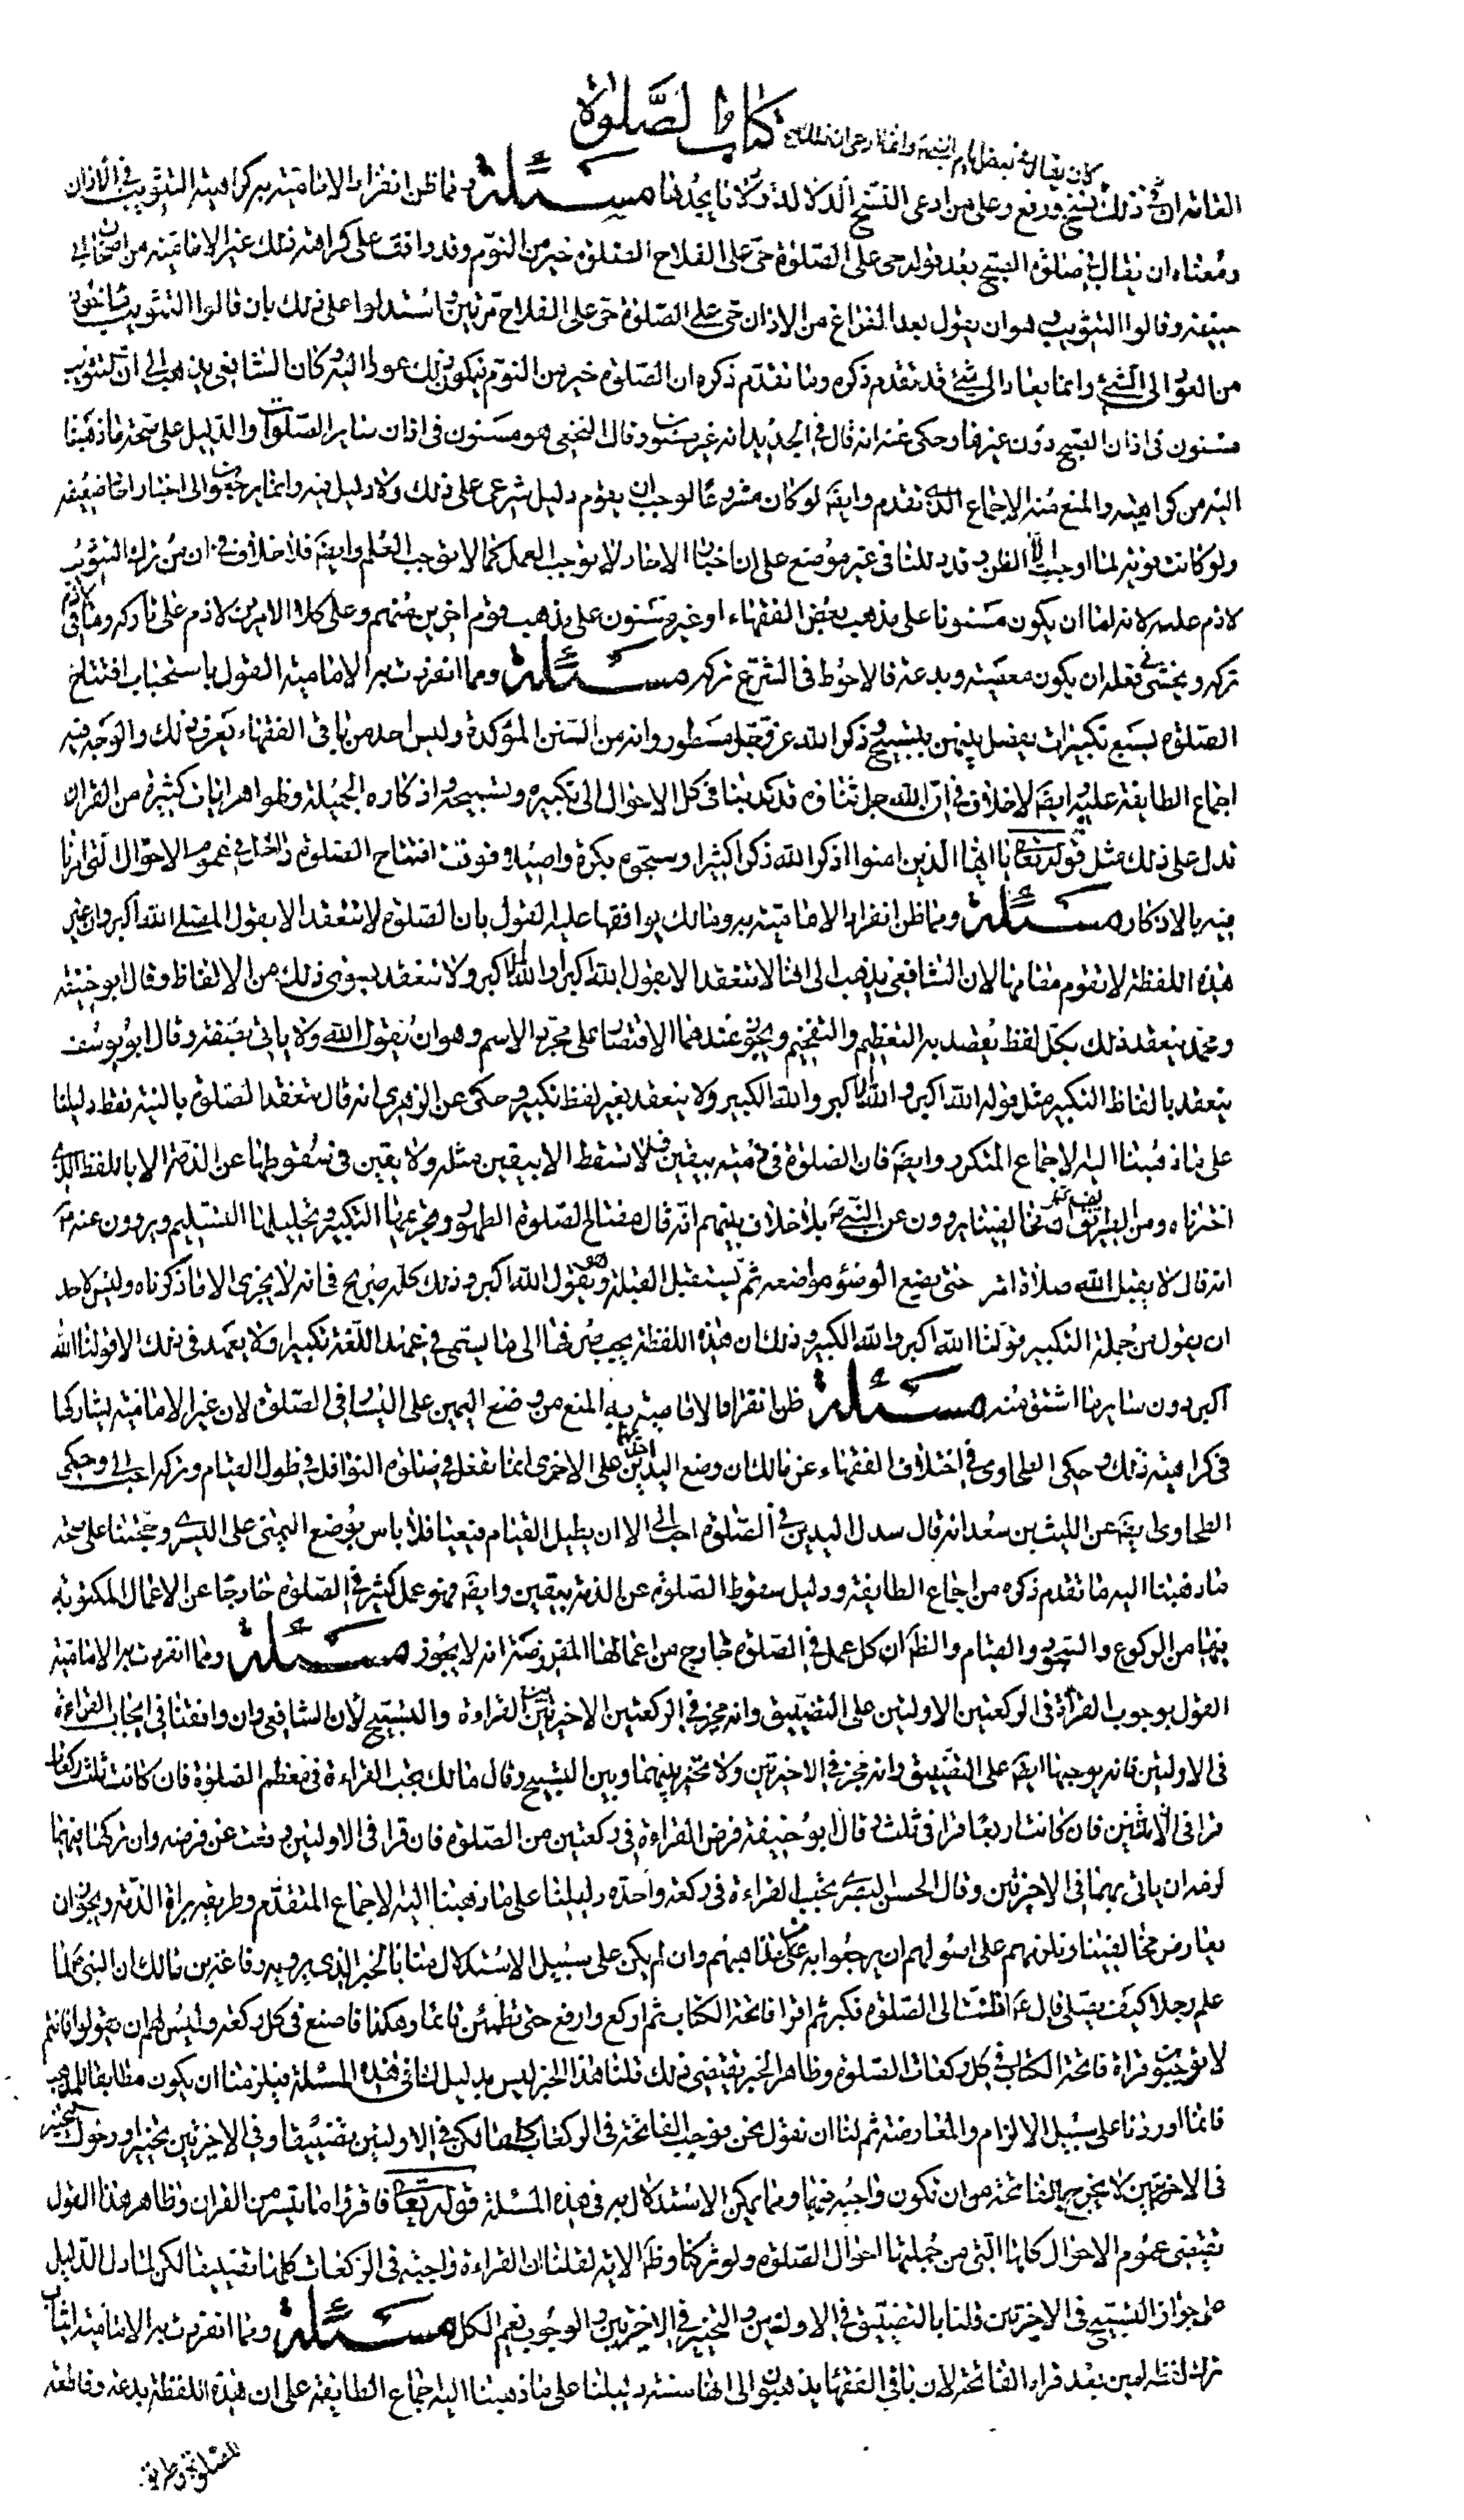 كتاب الصلوة
العامة ان في ذلك نسخ ورفع وعلى من ادعى النسخ الدلالة ولا نا يجدها مسئلة ومما ظن انفراد الامامية به كراهية التثويب في الاذان
ومعناه ان يقال في صلوة الصبح بعد قول حي على الصلوة حي على الفلاح الصلوة خير من النوم وقد وافقنا على كراهته ذلك غير الامامية من اصحاب ابي
حنيفة وقالوا التثويب هو ان يقول بعد الفراغ من الاذان حي على الصلوة حي على الفلاح مرتين واستدلوا على ذلك بان قالوا التثويب ماخوذ
من العود الى الشئ وانما يعاد الى شئ قد تقدم ذكره وما تقدم ذكره ان الصلوة خير من النوم فيكون ذلك عودا اليه وكان الشافعي يذهب الى ان التثويب
مسنون في اذان الصبح دون غيرها وحكى عنه انه قال في الجديد انه غير مسنون وقال النخعي هو مسنون في اذان ساير الصلوات والدليل على صحة ما ذهبنا
اليه من كراهيته والمنع منه الاجماع الذي تقدم وايضا لو كان مشروعا لوجب ان يقوم دليل شرعي على ذلك ولا دليل فيه وانما يرجعون الى اخبار احاد ضعيفة
ولو كانت قوية لما اوجبت الا الظن وقد دللنا في غير موضع على ان اخبار الاحاد لا يوجب العمل كما لا يوجب العلم وايضا فلا خلاف في ان من ترك التثويب
لا ذم عليه لانه اما ان يكون مسنونا على مذهب بعض الفقهاء او غير مسنون على مذهب قوم اخرين منهم وعلى كلا الامرين لا ذم على تاركه وما لا ذم في
تركه ويخشى في فعله ان يكون معصية وبدعة فالاحوط في الشرع تركه مسئلة ومما انفردت به الامامية القول باستحباب افتتاح
الصلوة بسبع تكبيرات يفصل بينهن بتسبيح وذكر الله عز وجل مسطور وانه من السنن المؤكدة وليس احد من باقي الفقهاء يعرف ذلك والوجه فيه
اجماع الطايفة عليه وايضا لا خلاف في ان الله جل ثناؤه قد ندبنا في كل الاحوال الى تكبيره وتسبيحه واذكاره الجميلة وظواهر ايات كثيرة من القران
تدل على ذلك مثل قوله تعا يا ايها الذين امنوا اذكروا الله ذكرا كثيرا وسبحوه بكرة واصيلا فوقت افتتاح الصلوة داخل في عموم الاحوال التي امرنا
فيه بالاذكار مسئلة ومما ظن انفراد الامامية به ومالك يوافقها عليه القول بان الصلوة لا تنعقد الا بقول المصلي الله اكبر وان غير
هذه اللفظة لا يقوم مقامها لان الشافعي يذهب الى انها لا تنعقد الا بقول الله اكبر او الله الاكبر ولا تنعقد بسوى ذلك من الالفاظ وقال ابو حنيفة
ومحمد ينعقد ذلك بكل لفظ يقصد به التعظيم والتفخيم ويجوز عندهما الاقتصار على مجرد الاسم وهو ان يقول الله ولا ياتي بصفة وقال ابو يوسف
ينعقد بالفاظ التكبير مثل قوله الله اكبر والله الاكبر والله الكبير ولا ينعقد بغير لفظ تكبير وحكي عن الزهري انه قال تنعقد الصلوة بالنية فقط دليلنا
على ما ذهبنا اليه الاجماع المتكرر وايضا فان الصلوة في ذمته بيقين فلا تسقط الا بيقين مثله ولا يقين في سقوطها عن الذمة الا باللفظ الذي
اخترناه ومن الفريق مخالفينا يروون عن النبي بلا خلاف بينهم انه قال مفتاح الصلوة الطهور وتحريمها التكبير وتحليلها التسليم ويروون عنه
انه قال لا يقبل الله صلاة امرء حتى يضع الوضوء مواضعه ثم يستقبل القبلة ويقول الله اكبر وذلك كله صريح في انه لا يجزى الا ما ذكرناه وليس لاحد
ان يقول من جملة التكبير قولنا الله اكبر والله الكبير وذلك ان هذه اللفظة يجب صرفها الى ما يسمى في اللغة تكبيرا ولا يعهد في ذلك الا قولنا الله
اكبر دون ساير ما اشتق منه مسئلة ظن انفراد الامامية به المنع من وضع اليمين على اليسار في الصلوة لان غير الامامية يشاركها
في كراهية ذلك وحكى الطحاوي في اختلاف الفقهاء عن مالك ان وضع اليدين احديهما على الاخرى انما تفعل في صلوة النوافل في طول القيام وتركه احب الي وحكى
الطحاوي ايضا عن الليث بن سعد انه قال سدل اليدين في الصلوة احب الي الا ان يطيل القيام فيعيا فلا باس بوضع اليمنى على اليسرى وحجتنا على صحة
ما ذهبنا اليه ما تقدم ذكره من اجماع الطايفة ودليل سقوط الصلوة عن الذمة بيقين وايضا فهو عمل كثير في الصلوة خارجا عن الاعمال المكتوبة
فيها من الركوع والسجود والقيام والظاهر ان كل عمل في الصلوة خارج من اعمالها المفروضة انه لا يجوز مسئلة ومما انفردت به الامامية
القول بوجوب القراءة في الركعتين الاولتين على التضييق وانه مخير في الركعتين الاخرتين بين القراءة والتسبيح لان الشافعي وان وافقنا في ايجاب القراءة
في الاوليين فانه يوجبها ايضا على التضييق وانه مخير في الاخرتين ولا تخيير بينهما وبين التسبيح وقال مالك يجب القراءة في معظم الصلوة فان كانت ثلث ركعات
قرا في الاثنتين فان كانت اربعا قرا في ثلث وقال ابو حنيفة فرض القراءة في ركعتين من الصلوة فان قرا في الاولتين وقعت عن فرضه وان تركها فيهما
لزمه ان ياتي بهما في الاخرتين وقال الحسن البصري يجب القراءة في ركعة واحدة دليلنا على ما ذهبنا اليه الاجماع المتقدم وطريقه براءة الذمة ويجوز ان
يعارض مخالفينا ونلزمهم على اصولهم ان يرجعوا به عن مذاهبهم وان لم يكن على سبيل الاستدلال منا بالخبر الذي يرويه رفاعة بن مالك ان النبي لما
علم رجلا كيف يصلي قال اذا قمت الى الصلوة فكبر ثم اقرا فاتحة الكتاب ثم اركع وارفع حتى تطمئن قائما وهكذا فاصنع في كل ركعة وليس لهم ان يقولوا فانتم
لا توجبون قراة فاتحة الكتاب في كل ركعات الصلوة وظاهر الخبر يقتضي ذلك قلنا هذا الخبر ليس بدليل لنا في هذه المسئلة فيلزمنا ان يكون مطابقا للمذهب
فانما اوردنا على سبيل الالزام والمعارضة ثم لنا ان نقول نحن نوجب الفاتحة في الركعات كلها لكن في الاوليين تضييقا وفي الاخرتين تخييرا ودخول التخيير
في الاخرتين لا يخرج الفاتحة من ان تكون واجبة فيها ومما يمكن الاستدلال به في هذه المسئلة قوله تعا فاقرؤا ما تيسر من القران وظاهر هذا القول
يقتضي عموم الاحوال كلها التي من جملتها احوال الصلوة ولو تركنا وظاهر الاية لقلنا ان القراءة واجبة في الركعات كلها تضييقا لكن لما دل الدليل
على جواز التسبيح في الاخرتين قلنا بالتضييق في الاولتين والتخيير في الاخرتين والوجوب يعم الكل مسئلة ومما انفردت به الامامية ايثار
ترك لفظة امين بعد قراءة الفاتحة لان باقي الفقهاء يذهبون الى انها سنة دليلنا على ما ذهبنا اليه اجماع الطايفة على ان هذه اللفظة بدعة وقاطعة
للصلوة وطريقة